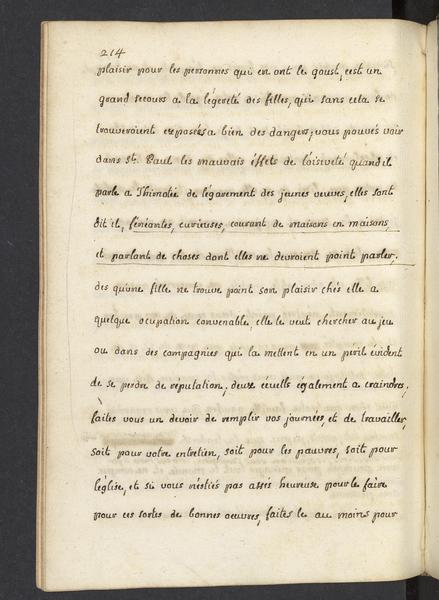 214
plaisir pour les personnes qui en ont le goust, c'est un
grand secours a la légereté des filles, qui sans cela se
trouveroient exposées a bien des dangers; vous pouvés voir
dans St. Paul les mauvais éffets de l'oisiveté quand il
parle a Thimotée de l'égarement des jeunes veuves, elles sont
dit il, fénéantes, curieuses, courant de maisons en maisons
et parlant de choses dont elles ne devroient point parler,
des qu'une fille ne trouve point son plaisir chés elle a
quelque ocupation convenable, elle le veut chercher au jeu
ou dans des compagnies qui la mettent en un péril évident
de se perdre de réputation, deux écueils également a craindre,
faites vous un devoir de remplir vos journées, et de travailler
soit pour votre entretien, soit pour les pauvres, soit pour
l'eglise, et si vous n'estiés pas assés heureuse pour le faire
pour ces sortes de bonnes oeuvres, faites le au moins pour